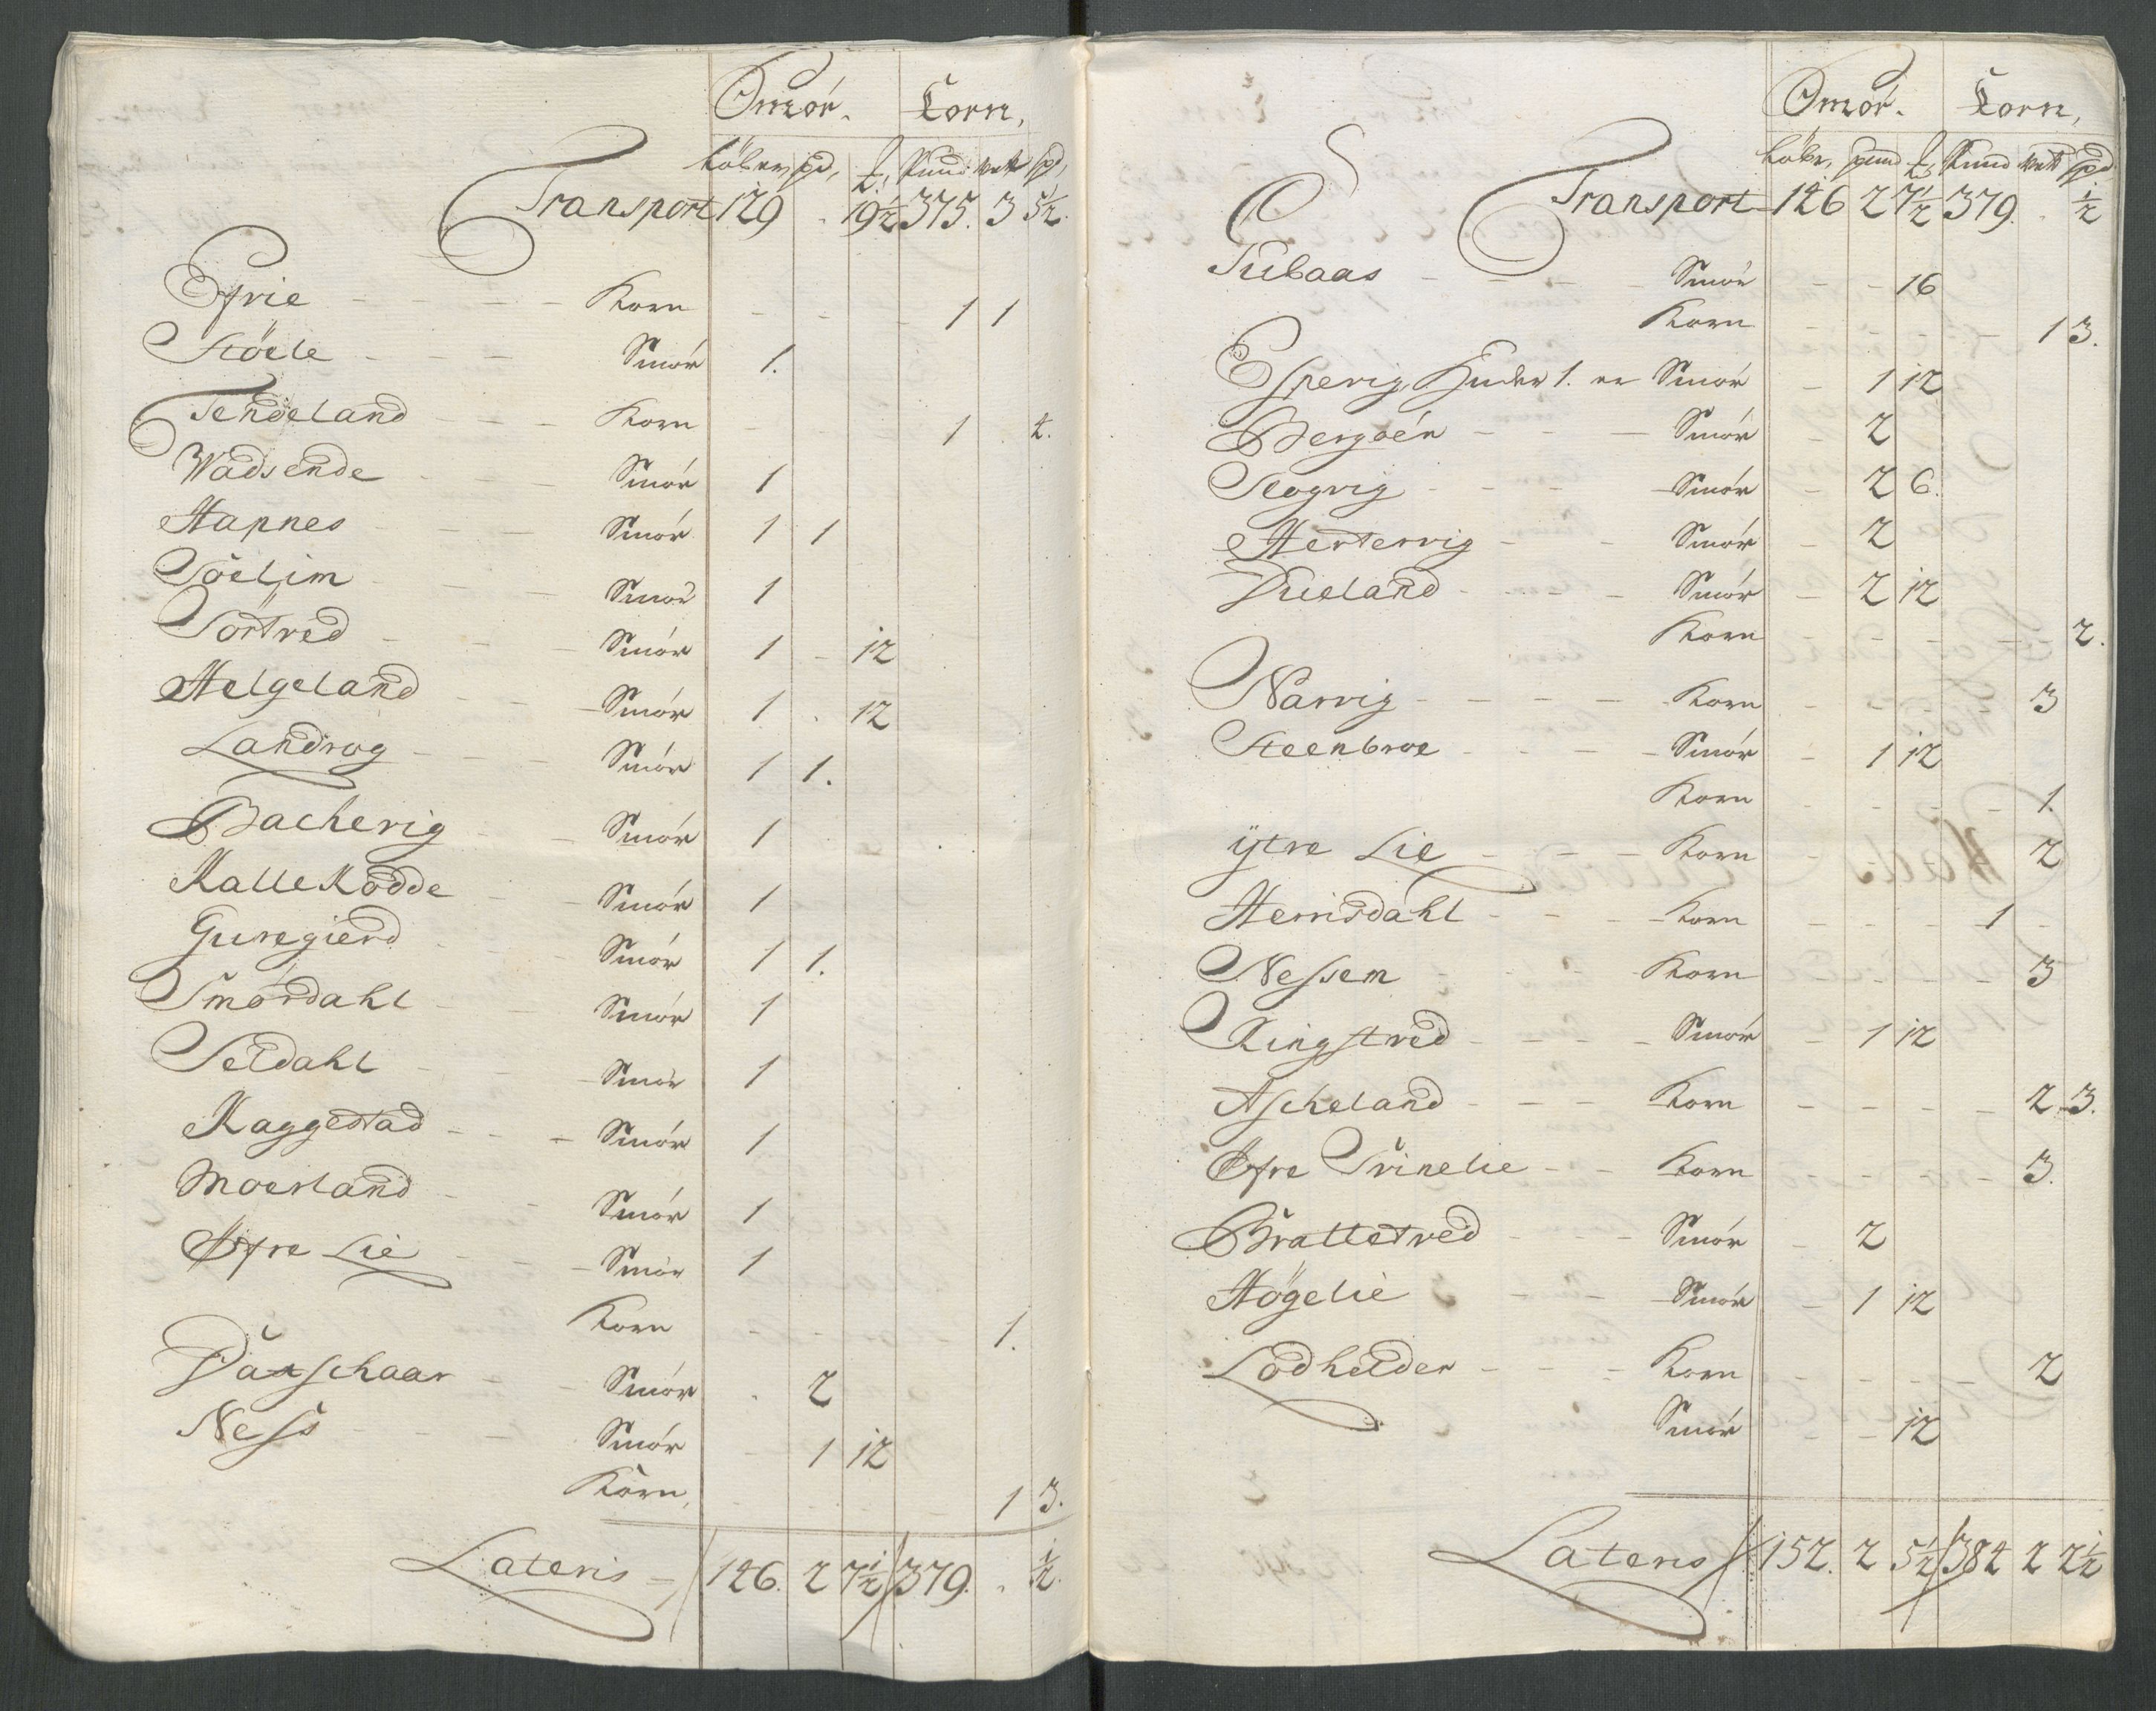 Smör. Corn,
löber, pd, ℔, Pund. Wett spd,
Transport 129 . 19½ 375. 3 5½.
Efrie - - - - Korn - - - 1 1
Stöele - - - Smör 1.
Tendeland - - - Korn - - - 1 . 4.
Wadsende - - - Smör 1
Hapnes - - - Smör 1 1
Söelim - - - Smör 1
Sörtved - - - Smör 1 - 12
Helgeland - - - Smör 1 . 12
Landvog - - - Smör 1 1.
Bachevig - - Smör 1
KalleKodde - - Smör 1
Guregierd - - - Smör 1 1.
Smördahl - - - Smör 1
Seldahl - - - Smör 1
Kaggestad - - - Smör 1
Moesland - - Smör 1
Øfre Lie - - - Smör 1
Korn - - - - 1.
Daxschaar - - Smör . 2
Ness - - - Smör - 1 12
Korn, - - - - 1 3.
Lateris - 146. 2 7½ 379. . ½.
Smör. Corn,
Löbr, pund ℔, Pund Wett spd
Transport 146 2 7½ 379. . ½
Tubaas - - - - Smör - - 16
Korn - - - - 1 3.
Espevig Huder 1. er Smör - 1 12
Bergöen - - - Smör - 2
Slogvig - - - Smör - 2 6.
Hertervig - - Smör - 2
Dueland - - - - Smör - 2 12
Korn - - - - - 2.
Narvig - - - - Korn - - - - 3
Steenbroe - - - - Smör - 1 12
Korn - - - - 1.
ÿtre Lie - - - Korn - 2
Hervisdahl - - - Korn - - - 1 -
Nessem - - - Korn - - - - 3
Ringstved - - - - Smör - 1 12
Ascheland - - - Korn - - - - 2 3.
Øfre Svinelie - - Korn - - - - 3.
Brattetved - - - Smör - 2
Högelie - - - Smör - 1 12
Lodhelder - - - Korn - - - - 2
Smör - - 12
Lateris 152. 2 5½ 384 2 2½